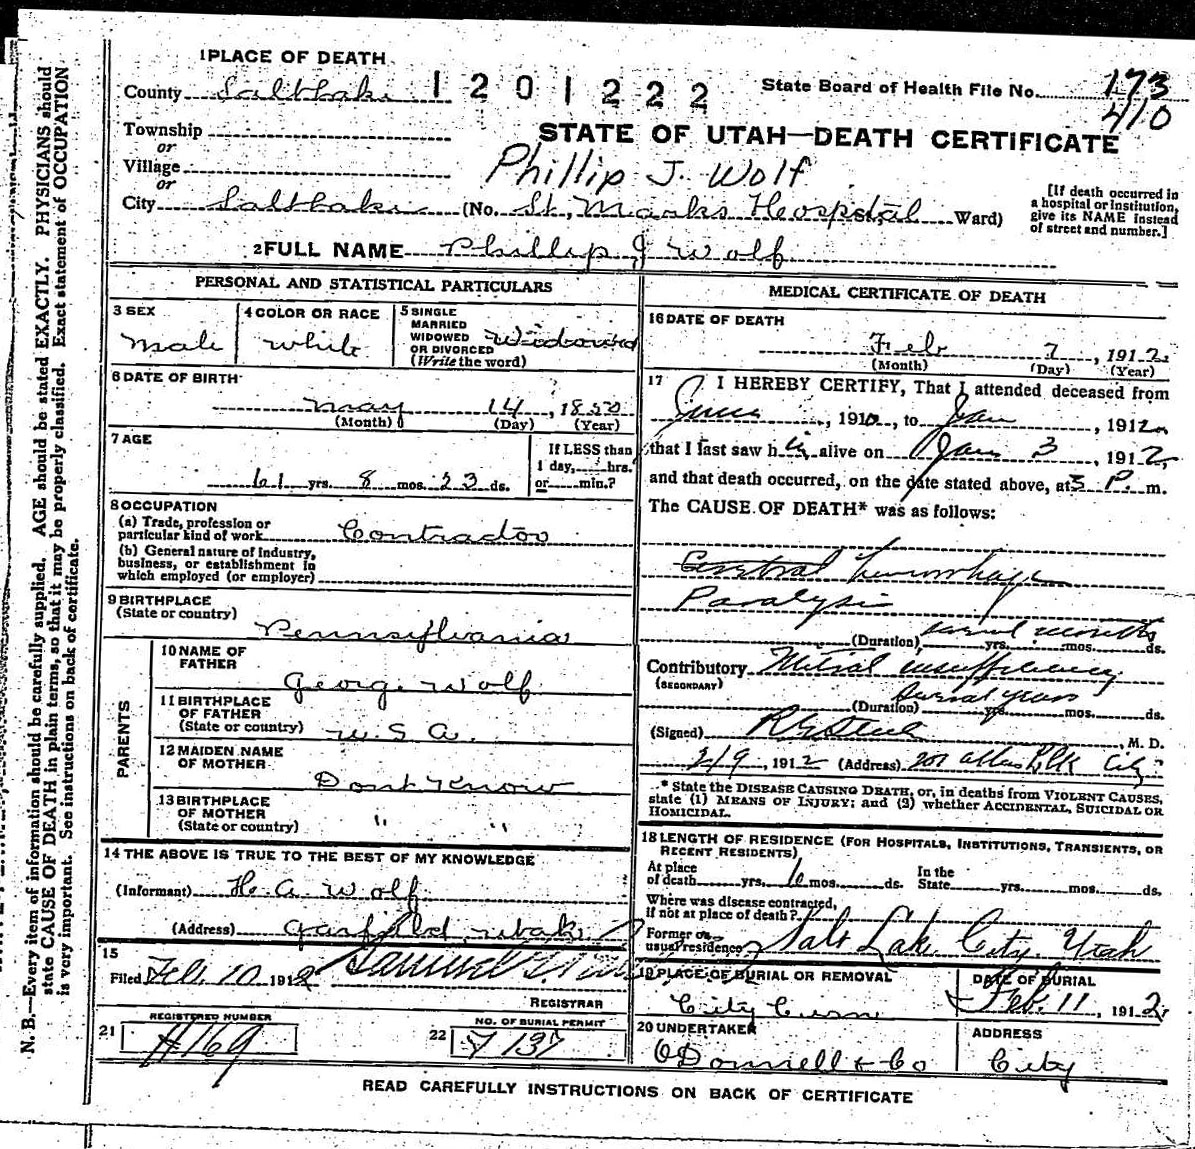 1 PLACE OF DEATH
County Salt Lake 1201222 State Board of Health File No. 173
410
Township
or
STATE OF UTAH—DEATH CERTIFICATE
Village
or
Phillip J. Wolf
City Salt Lake (No. St, Marks Hospital Ward)
[If death occurred in a hospital or institution, give its NAME instead of street and number.]
2 FULL NAME Phillip J Wolf
PERSONAL AND STATISTICAL PARTICULARS
3 SEX
male
4 COLOR OR RACE
white
5 SINGLE
MARRIED
WIDOWED
OR DIVORCED
(Write the word)
Widowed
6 DATE OF BIRTH
May 14, 1850
(Month) (Day) (Year)
7 AGE
61 yrs. 8 mos. 23 ds.
If LESS than
1 day, hrs.
or min.?
8 OCCUPATION
(a) Trade, profession or
particular kind of work Contractor
(b) General nature of industry,
business, or establishment in
which employed (or employer)
9 BIRTHPLACE
(State or country)
Pennsylvania
PARENTS
10 NAME OF
FATHER
George Wolf
11 BIRTHPLACE
OF FATHER
(State or country) U S A.
12 MAIDEN NAME
OF MOTHER
Dont Know
13 BIRTHPLACE
OF MOTHER
(State or country) " "
14 THE ABOVE IS TRUE TO THE BEST OF MY KNOWLEDGE
(Informant) H. A. Wolf
(Address) Garfield Utah
15
Filed Feb. 10 1912 Samuel G.
REGISTRAR
21 REGISTERED NUMBER
H169
22 NO. OF BURIAL PERMIT
137
MEDICAL CERTIFICATE OF DEATH
16 DATE OF DEATH
Feb 7, 1912
(Month) (Day) (Year)
17 I HEREBY CERTIFY, That I attended deceased from
June, 1910, to Jan, 1912
that I last saw him alive on Jan 3, 1912,
and that death occurred, on the date stated above, at 5 P. m.
The CAUSE OF DEATH* was as follows:
Cerebral hemorrhage
Paralysis
(Duration) several months yrs. mos. ds.
Contributory Mitral insufficiency
(SECONDARY)
(Duration) Several years yrs. mos. ds.
(Signed) M. D.
2/9, 1912 (Address) 201 Blk City
* State the DISEASE CAUSING DEATH, or, in deaths from VIOLENT CAUSES,
state (1) MEANS OF INJURY; and (2) whether ACCIDENTAL, SUICIDAL OR
HOMICIDAL.
18 LENGTH OF RESIDENCE (FOR HOSPITALS, INSTITUTIONS, TRANSIENTS, OR
RECENT RESIDENTS)
At place
of death yrs. mos. ds. In the
State yrs. mos. ds.
Where was disease contracted,
if not at place of death?
Former or
usual residence Salt Lake City, Utah
19 PLACE OF BURIAL OR REMOVAL
City Cem
DATE OF BURIAL
Feb. 11, 1912
20 UNDERTAKER
O'Donnell & Co
ADDRESS
City
READ CAREFULLY INSTRUCTIONS ON BACK OF CERTIFICATE
N. B.—Every item of information should be carefully supplied. AGE should be stated EXACTLY. PHYSICIANS should
state CAUSE OF DEATH in plain terms, so that it may be properly classified. Exact statement of OCCUPATION
is very important. See instructions on back of certificate.